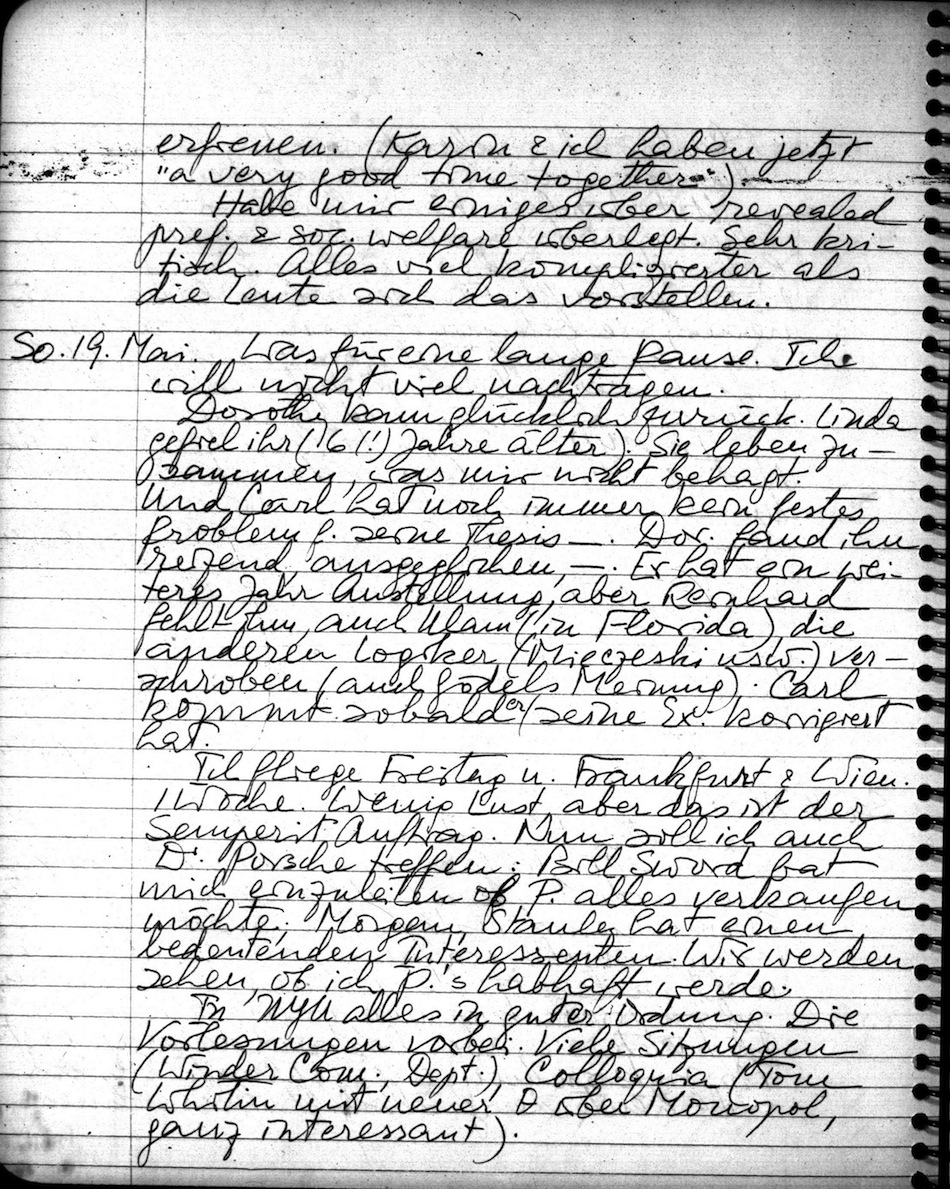 erfreuen. (Karin & ich haben jetzt
"a very good time together")
Habe mir einiges über revealed
pref. & soc. welfare überlegt. Sehr kri-
tisch. Alles viel komplizierter als
die Leute sich das vorstellen.
So. 19. Mai. Was für eine lange Pause. Ich
will nicht viel nachtragen.
Dorothy kam glücklich zurück. Linda
gefiel ihr (16 (!) Jahre älter). Sie leben zu-
sammen, was mir nicht behagt.
Und Carl hat noch immer kein festes
Problem f. seine Thesis —. Dor. fand ihn
reizend ausgeglichen, —. Er hat ein wei-
teres Jahr Anstellung, aber Reinhard
fehlt ihm, auch Ulam (in Florida), die
anderen Logiker (Mieczeski usw.) ver-
schroben (auch Gödels Meinung). Carl
kommt sobald er seine Ex. korrigiert
hat.
Ich fliege Freitag n. Frankfurt & Wien.
1 Woche. Wenig Lust, aber das ist der
Semperit Auftrag. Nun soll ich auch
Dr. Porsche treffen: Bill Sword bat
mich einzuleiten ob P. alles verkaufen
möchte. Morgan, Stanley hat einen
bedeutenden Interessenten. Wir werden
sehen, ob ich P.'s habhaft werde.
In NYU alles in guter Ordnung. Die
Vorlesungen vorbei. Viele Sitzungen
(Winder Com., Dept.), Colloquia (Tom
Whitin mit neuer θ über Monopol,
ganz interessant).